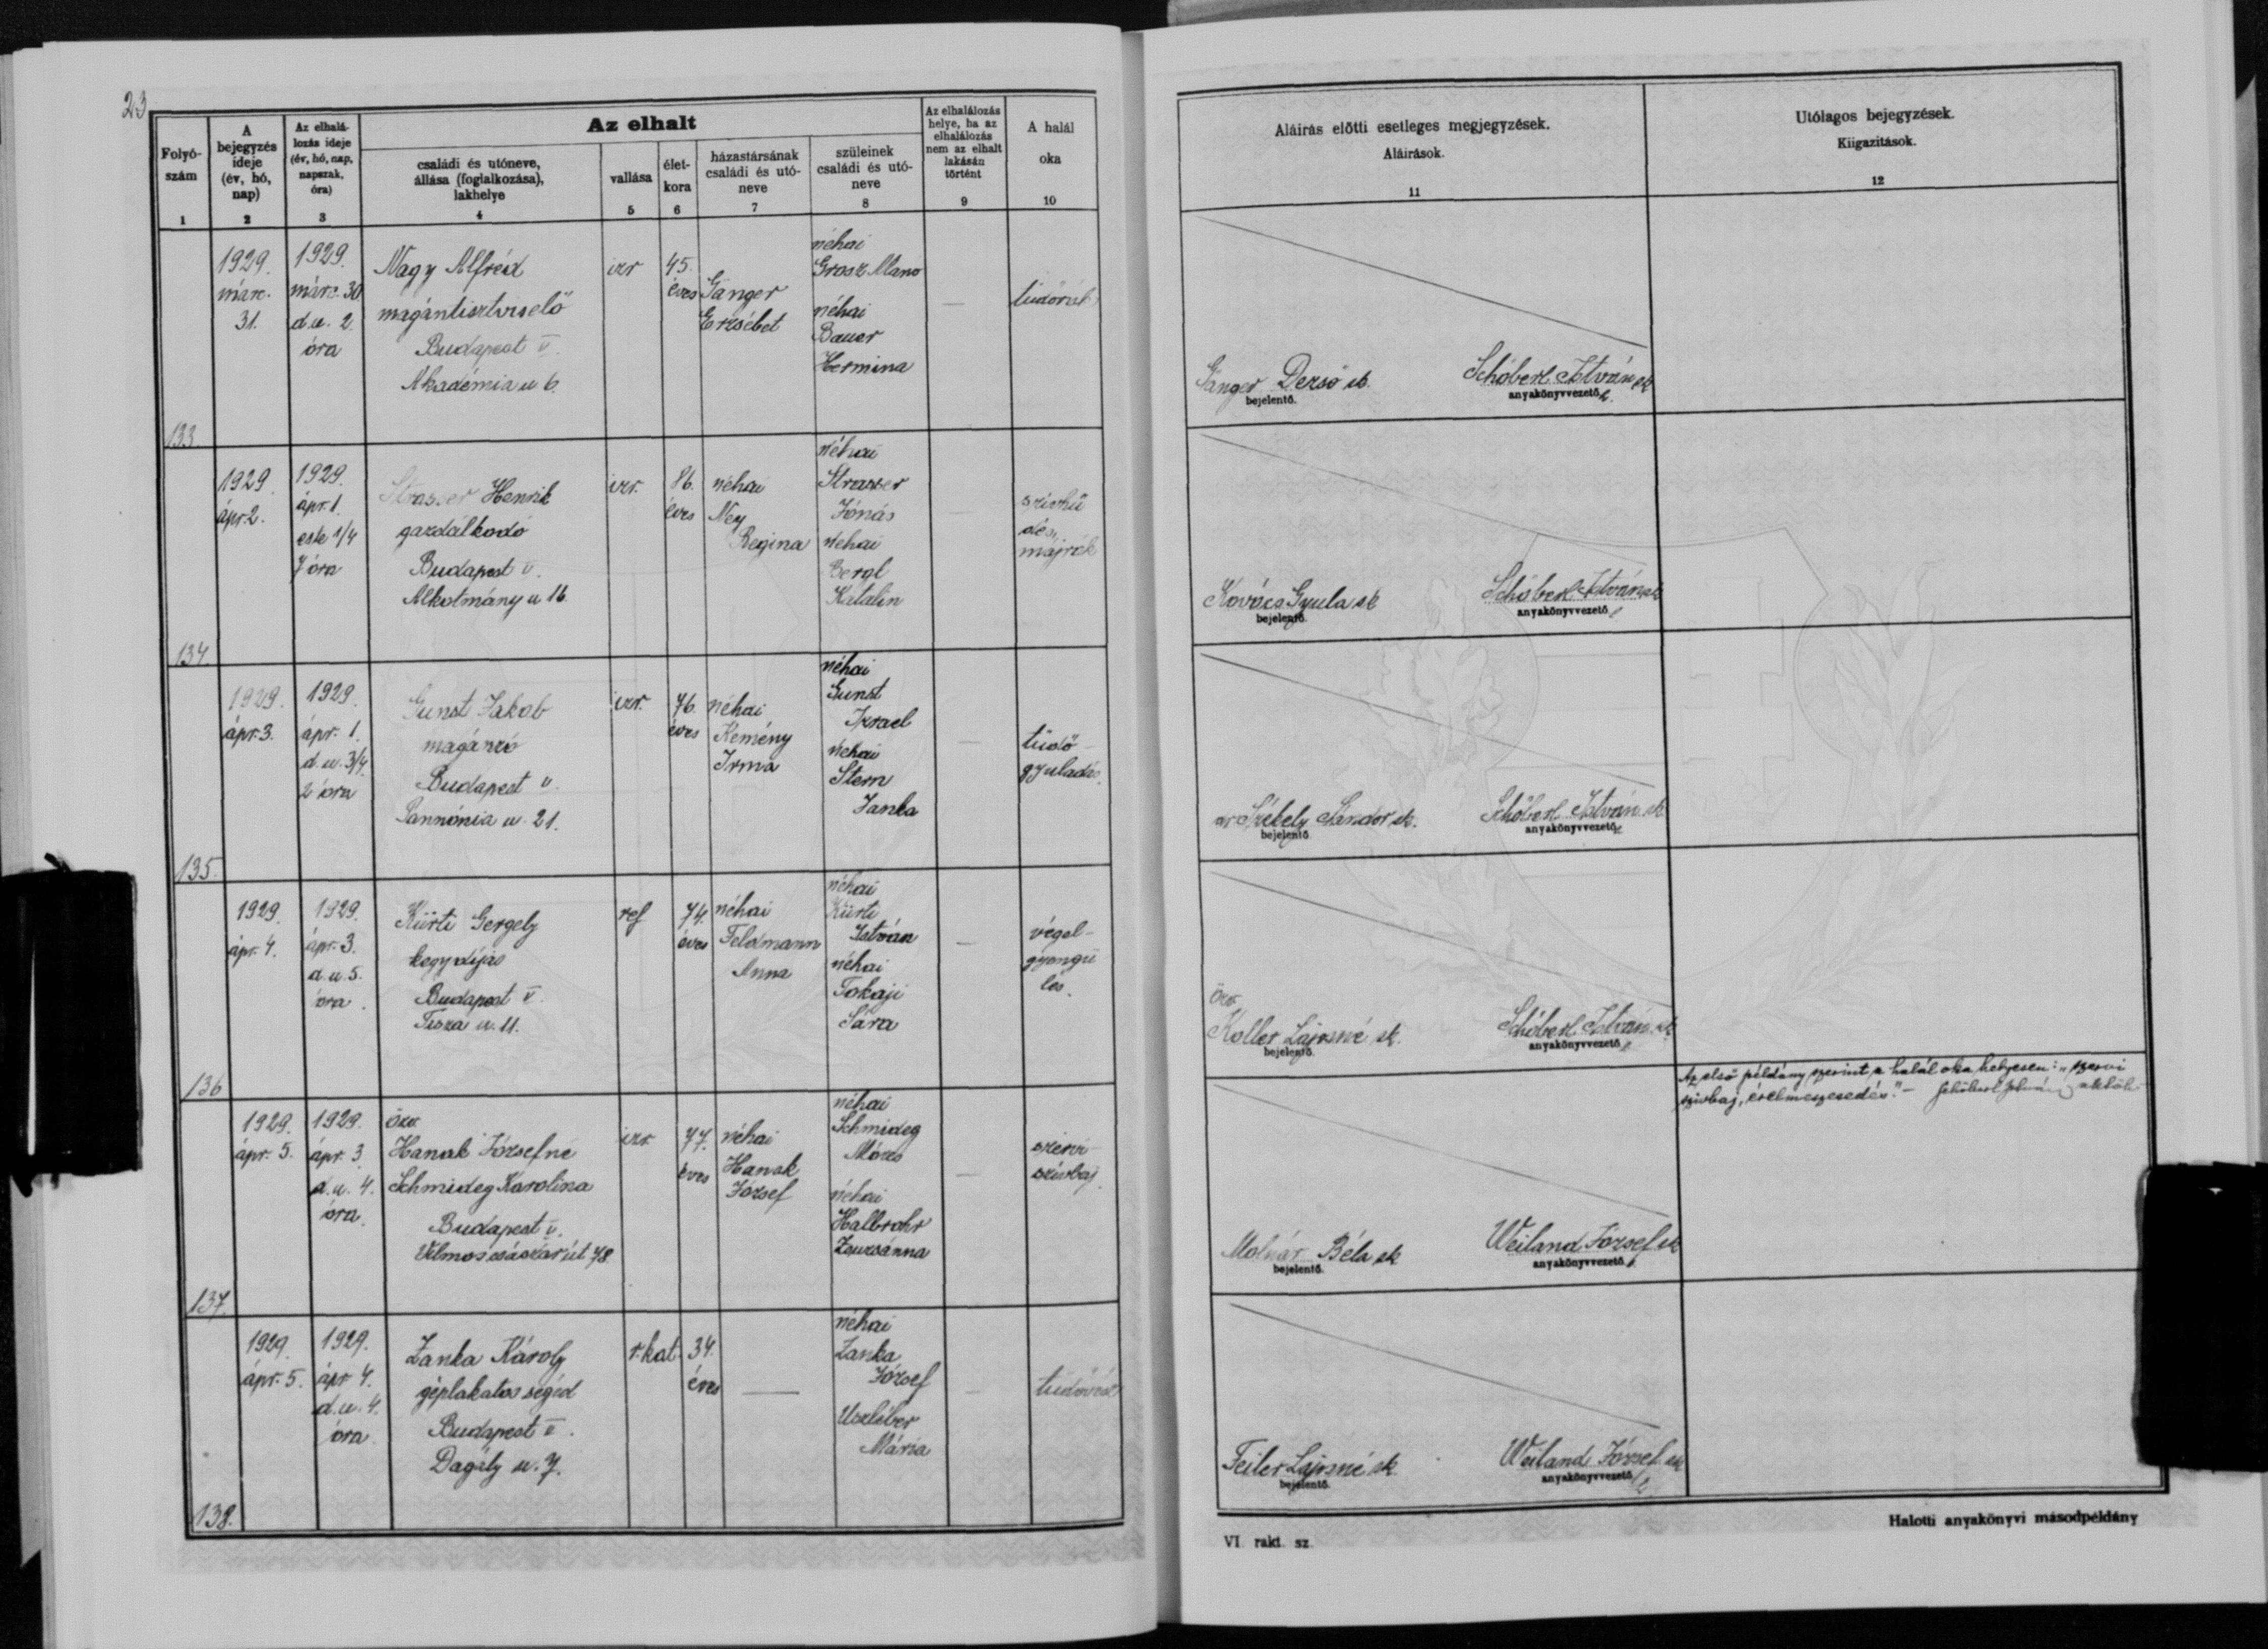 23
Folyó-
szám
1
A
bejegyzés
ideje
(év, hó,
nap)
2
Az elhalá-
lozás ideje
(év, hó, nap,
napszak,
óra)
3
Az elhalt
családi és utóneve,
állása (foglalkozása),
lakhelye
4
vallása
5
élet-
kora
6
házastársának
családi és utó-
neve
7
szüleinek
családi és utó-
neve
8
Az elhalálozás
helye, ha az
elhalálozás
nem az elhalt
lakásán
történt
9
A halál
oka
10
Aláírás előtti esetleges megjegyzések.
Aláírások.
11
Utólagos bejegyzések.
Kiigazítások.
12
133.
1929.
márc.
31.
1929.
márc. 30
d.u. 2.
óra
Nagy Alfréd
magántisztviselő
Budapest V.
Akadémia u 6.
izr
45.
éves
Ganger
Erzsébet
néhai
Grosz Mano
néhai
Bauer
Hermina
—
tüdőrák
Ganger Dezső sk.
bejelentő.
Schöberl István sk
anyakönyvvezető
134.
1929.
ápr. 2.
1929.
ápr. 1.
este 1/4
7 óra
Strasser Henrik
gazdálkodó
Budapest V.
Alkotmány u 16.
izr.
86.
éves
néhai
Ney
Regina
néhai
Strasser
Jónás
néhai
Katalin
szívhű
dés,
májrák
Kovács Gyula sk
bejelentő.
Schöberl István sk
anyakönyvvezető
135.
1929.
ápr. 3.
1929.
ápr. 1.
d.u. 3/4
2 óra
Gunst Jakab
magánzó
Budapest V.
Pannónia u. 21.
izr.
76.
éves
néhai
Kemény
Irma
néhai
Gunst
Izrael
néhai
Stern
Janka
—
tüdő-
gyuladás.
dr Székely Sándor sk.
bejelentő.
Schöberl István sk
anyakönyvvezető
136
1929.
ápr. 4.
1929.
ápr. 3.
d.u. 5.
óra.
Kürti Gergely
kegydíjas
Budapest V.
Tisza u. 11.
ref
74.
éves
néhai
Feldmann
Anna
néhai
Kürti
István
néhai
Tokaji
Sára
—
végel-
gyengü
lés.
özv.
Koller Lajosné sk.
bejelentő.
Schöberl István sk
anyakönyvvezető
137.
1929.
ápr. 5.
1929.
ápr. 3.
d.u. 4.
óra.
özv.
Hanak Józsefné
Schmideg Karolina
Budapest V.
Vilmos császár út 78
izr.
77.
éves
néhai
Hanak
József
néhai
Schmideg
Mózes
néhai
Halbrohr
Zsuzsánna
—
szervi
szívbaj.
Molnár Béla sk
bejelentő.
Weiland József sk
anyakönyvvezető
Az első példány szerint a halál oka helyesen: „szervi
szívbaj, érelmeszesedés." — Schöberl István
138.
1929.
ápr. 5.
1929.
ápr 4.
d.u. 4.
óra
Zanka Károly
géplakatos segéd
Budapest V.
Dagály u. 7.
r. kat.
34.
éves
—
néhai
Zanka
József
Mária
—
Feiler Lajosné sk.
bejelentő.
Weiland József sk
anyakönyvvezető
VI. rakt. sz.
Halotti anyakönyvi másodpéldány